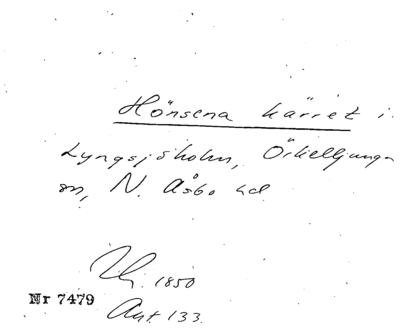 Hönsena kärret i
Lyngsjöholm, Örkelljunga
sn, N. Åsbo hd
1850
Nr 7479
Ant. 133.